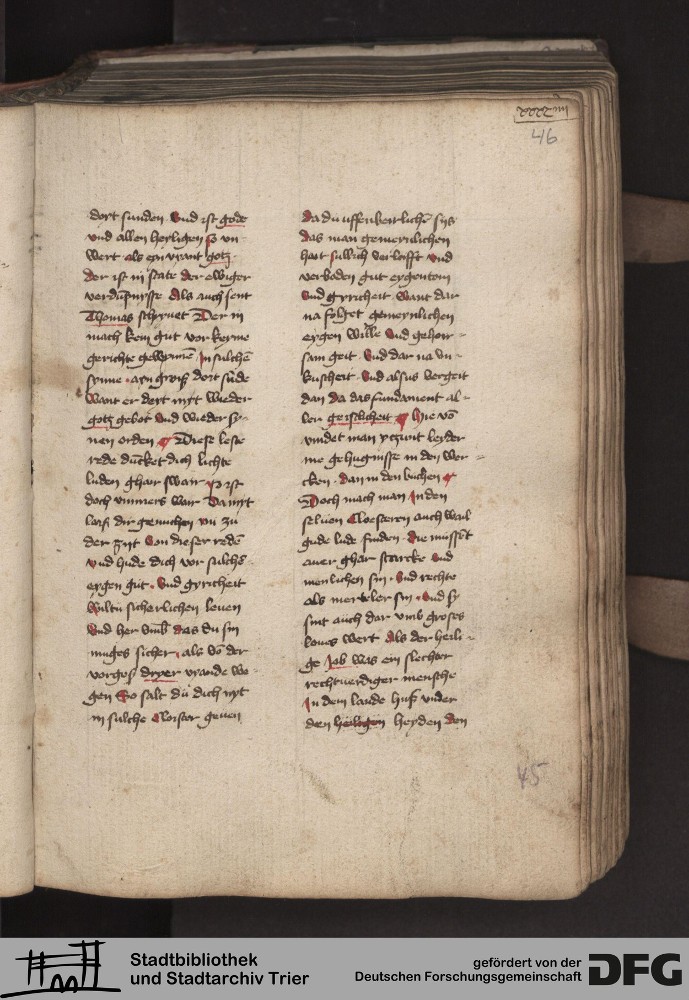 xxxxiiij
46
dort sunden Vnd ist gode
vnd allen heyligen so vn
wert als eyn viant gotz
der ist in state der ewiger
verdūpnisse Als auch sent
Thomas schryuet Der in
mach kein gut vor kerme
gerichte gewynnē In sulchē
synne
want er dort nyt wieder
gotz gebot vnd wieder sy
nen orden ¶ Diese leste
rede dūcket dich lichte
luden ghar swair ist
doch vmmers wair Da nyt
laiß dir genuchen vn zu
der zyt von dieser redē
vnd hude dich vor sulchē
eygen gut vnd gyricheit
wiltu sicherlichen leuen
Vnd her vmb das du sin
muges sicher als vō der
vorges dryer vrande wo
gen So salt du dich nyt
in sulche Cloister geuen
da du uffenberlichē sys
das man gemeynlichen
hait sullich verkeufft vnd
verboden gut eygentom
Vnd gyricheit want dar
na folget gemeynlichen
eygen wille Vnd gehoir
sam geit Vnd dar na vn
kuscheit Vnd alsus vergeit
dan da das fundament al
ler geistlicheit ¶ Hie vō
vindet man yczunt leyder
me gehugnisse in den wer
cken dan in den buchen ¶
Doch mach man In den
seluen Cloesteren auch wail
gude lude finden die mussēt
auer ghar starcke vnd
menlichen sin vnd rechte
als merteler sin Vnd sy
sint auch dar vmb groses
loues wert Als der heili
ge Job was ein slechter
rechtuerdiger mensche
In dem lande huß vnder
den heiligen heyden den
45
Stadtbibliothek
und Stadtarchiv Trier
gefördert von der
Deutschen Forschungsgemeinschaft
DFG